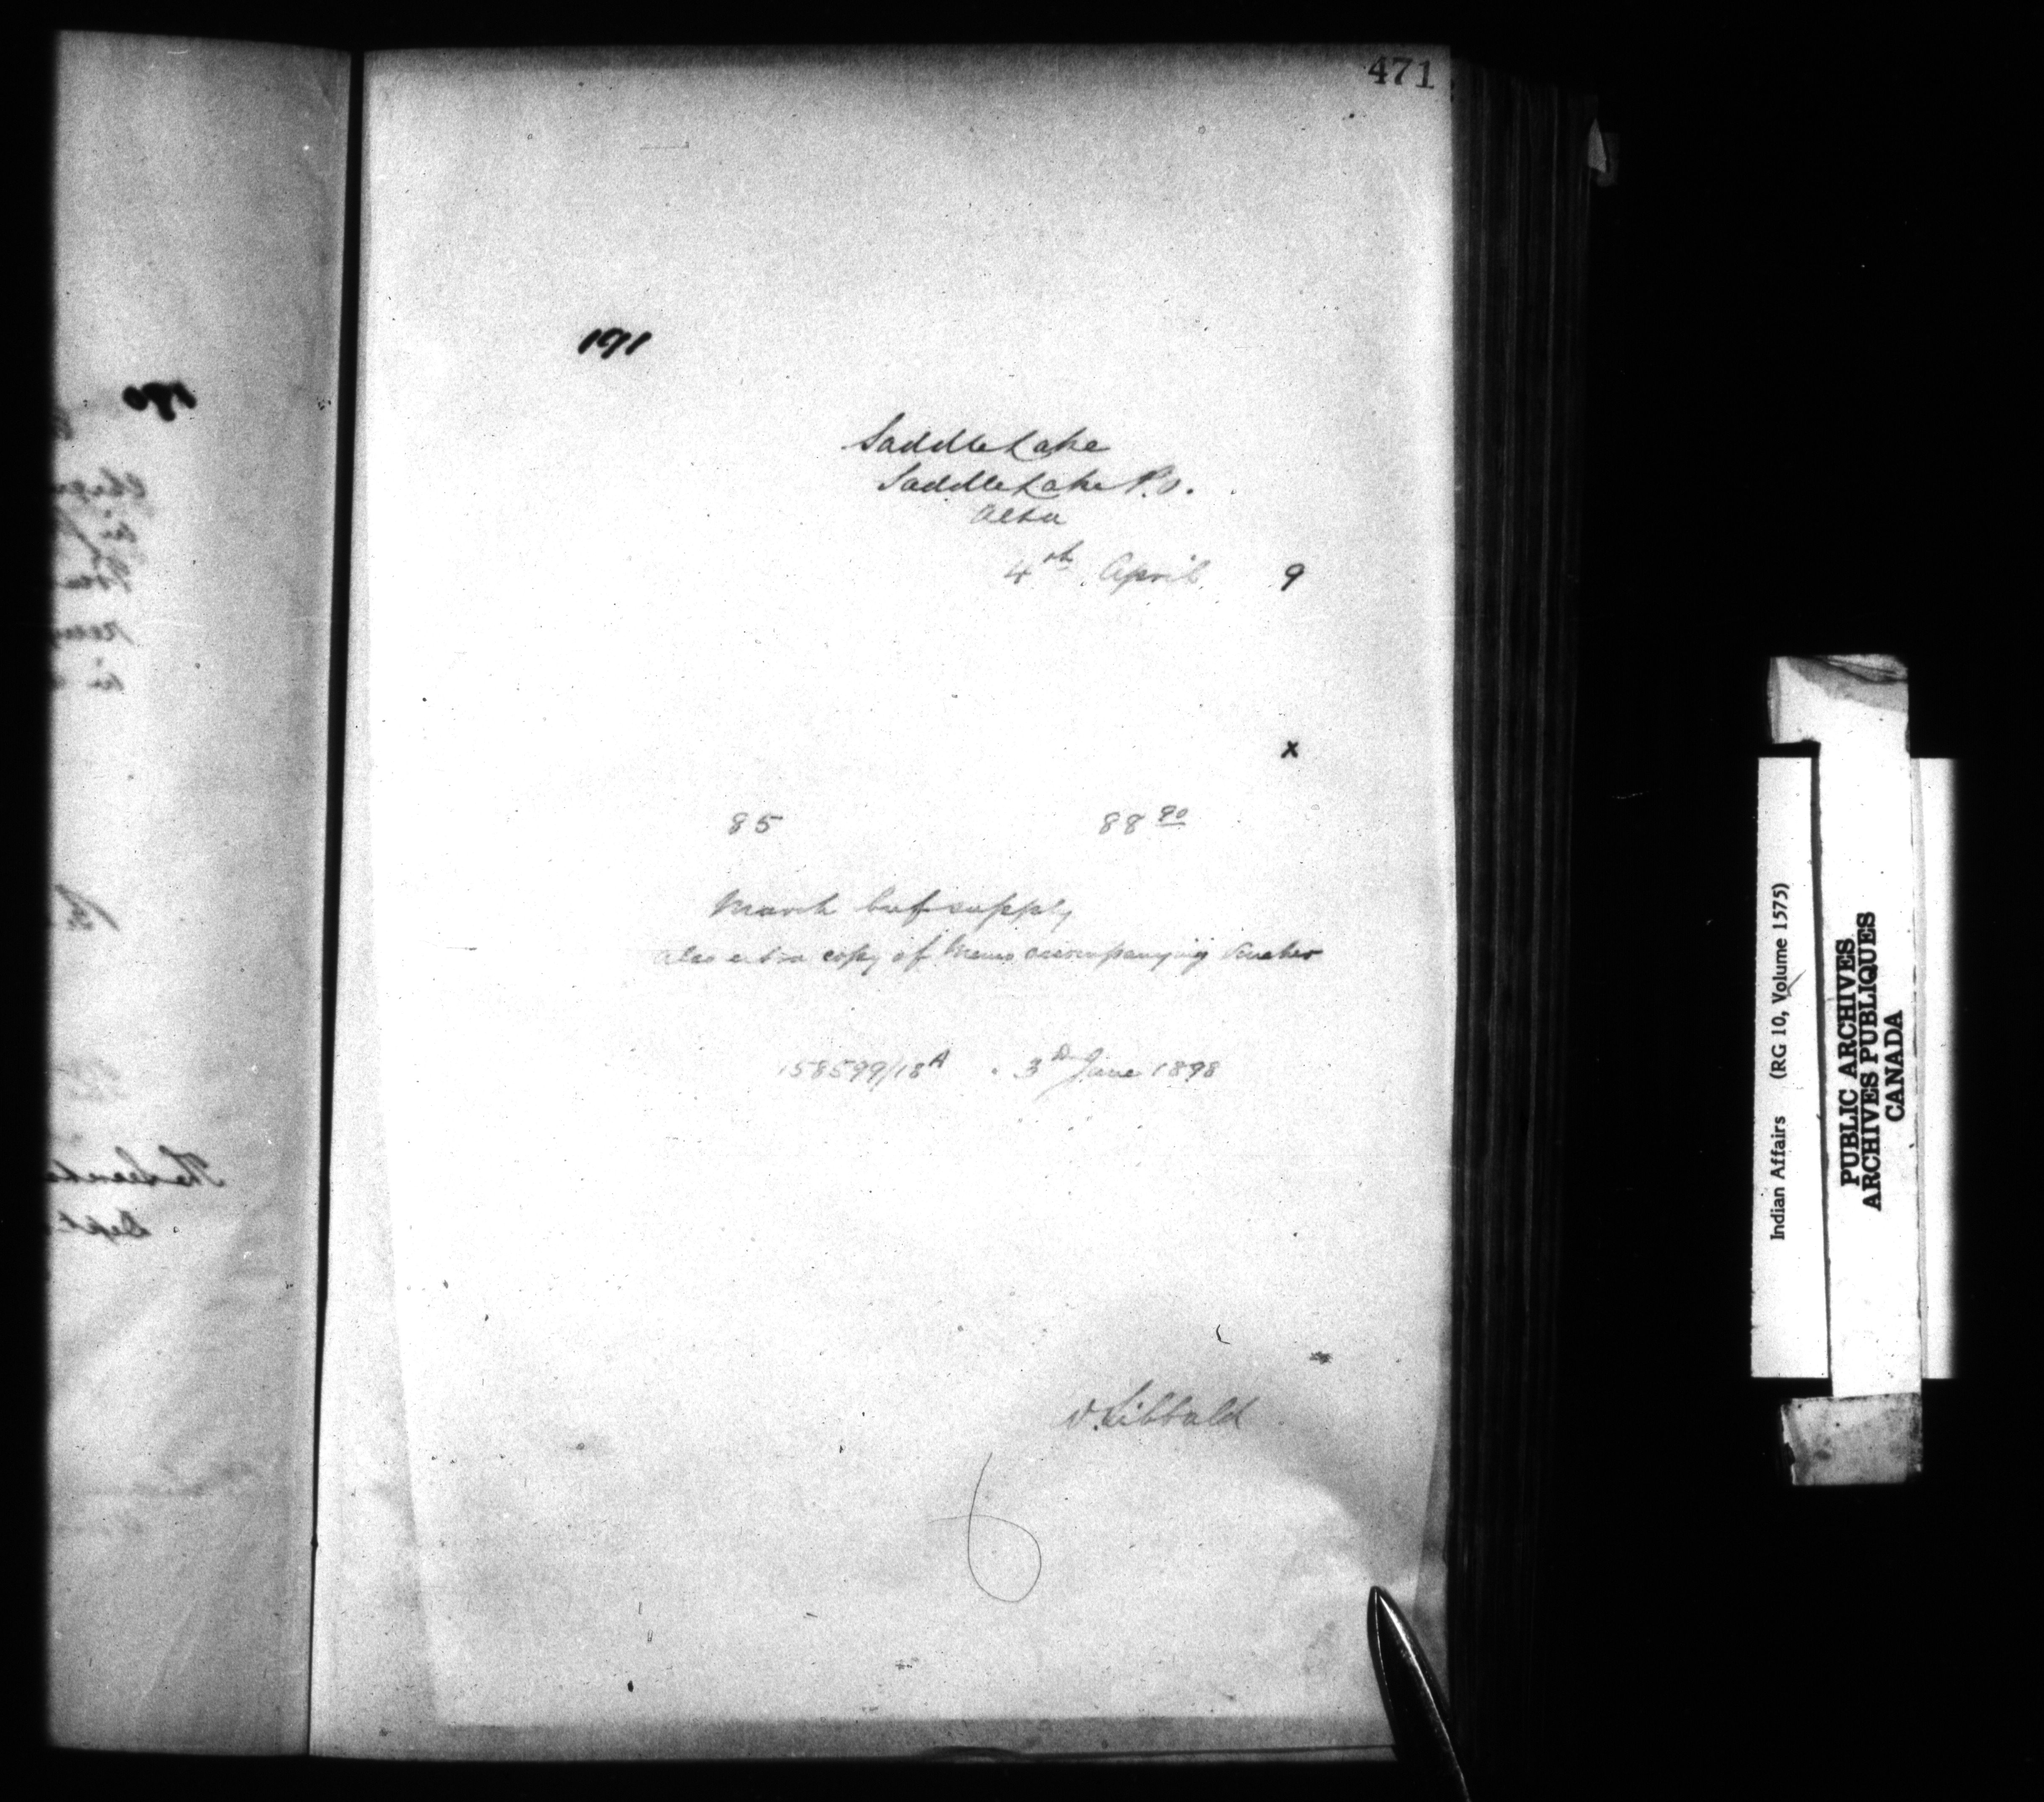 471
191
Saddle Lake
Saddle Lake P.O.
Alta
4th April 9
x
85 88 90
March beef supply
also extra copy of Memo accompanying Voucher
158599/18A . 3D June 1898
W. Sibbald
190
Indian Affairs (RG 10, Volume 1575)
PUBLIC ARCHIVES
ARCHIVES PUBLIQUES
CANADA